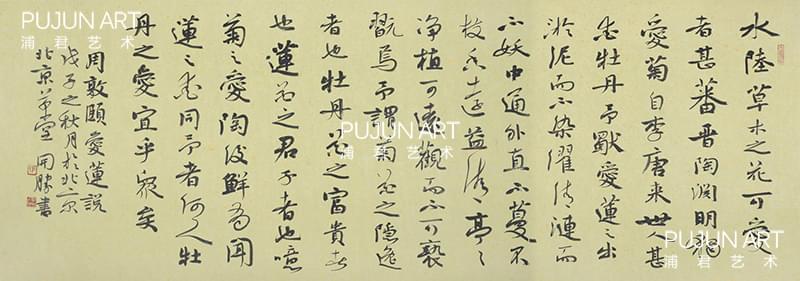 水陸草木之花可愛
者甚蕃晉陶淵明獨
愛菊自李唐來世人甚
愛牡丹予獨愛蓮之出
淤泥而不染濯清漣而
不妖中通外直不蔓不
枝香遠益清亭々
净植可遠觀而不可褻
翫焉予謂菊花之隱逸
者也牡丹花之富貴者
也蓮花之君子者也噫
菊之愛陶後鮮有聞
蓮之愛同予者何人牡
丹之愛宜乎衆矣
周敦頤愛蓮説
戊子之秋月於北京
北京草堂 開勝書
PUJUN ART
浦君艺术
PUJUN ART
浦君艺术
PUJUN ART
浦君艺术